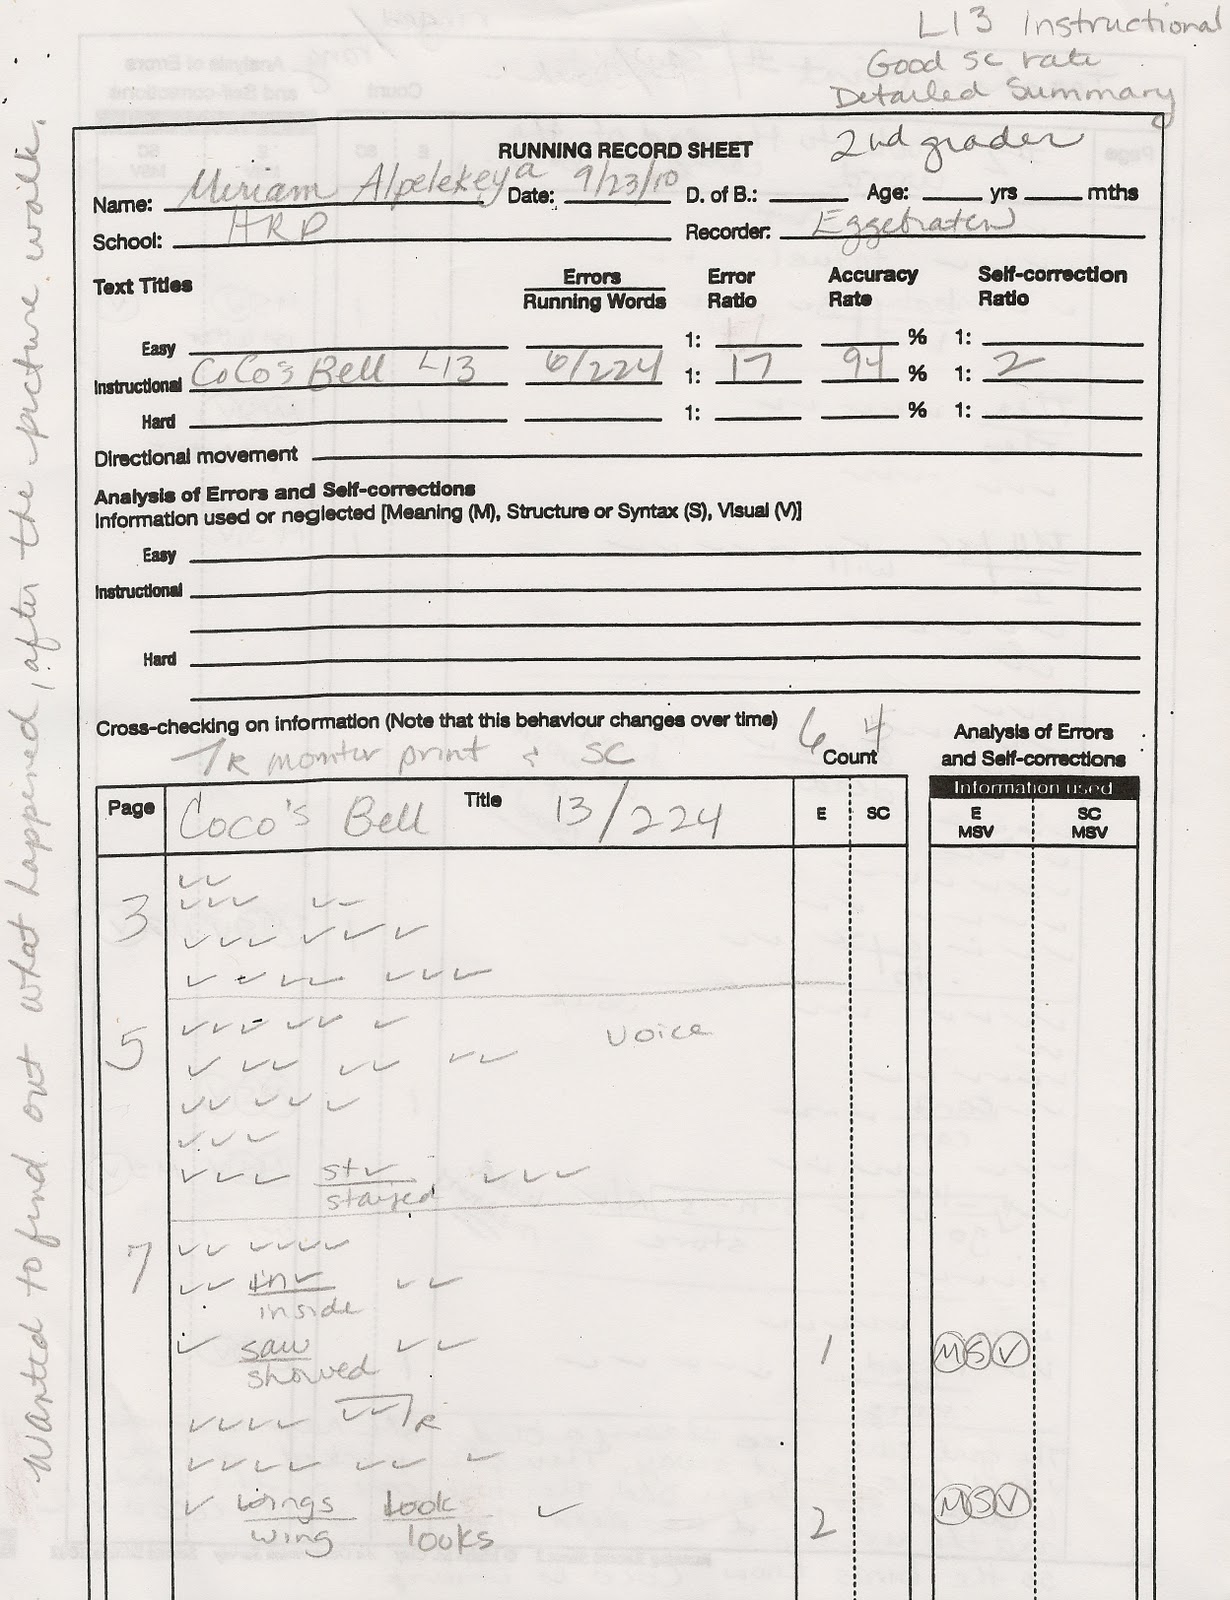 L13 Instructional
Good sc rate
Detailed Summary
RUNNING RECORD SHEET 2nd grader
Name: Miriam Alpelekeya Date: 9/23/10 D. of B.: Age: yrs mths
School: HRP Recorder: Eggebraten
Text Titles Errors Error Accuracy Self-correction
Running Words Ratio Rate Ratio
Easy 1: % 1:
Instructional CoCo's Bell L13 6/224 1: 17 94 % 1: 2
Hard 1: % 1:
Directional movement
Analysis of Errors and Self-corrections
Information used or neglected [Meaning (M), Structure or Syntax (S), Visual (V)]
Easy
Instructional
Hard
Cross-checking on information (Note that this behaviour changes over time) 6 4 Analysis of Errors
R monitor print & SC Count and Self-corrections
Page Coco's Bell Title 13/224 E SC Information used
E SC
MSV MSV
3
5 voice
st ✓
stayed
7
in ✓
inside
saw 1 M S V
showed
R
wings look 2 M S V
wing looks
Wanted to find out what happened, after the picture walk.